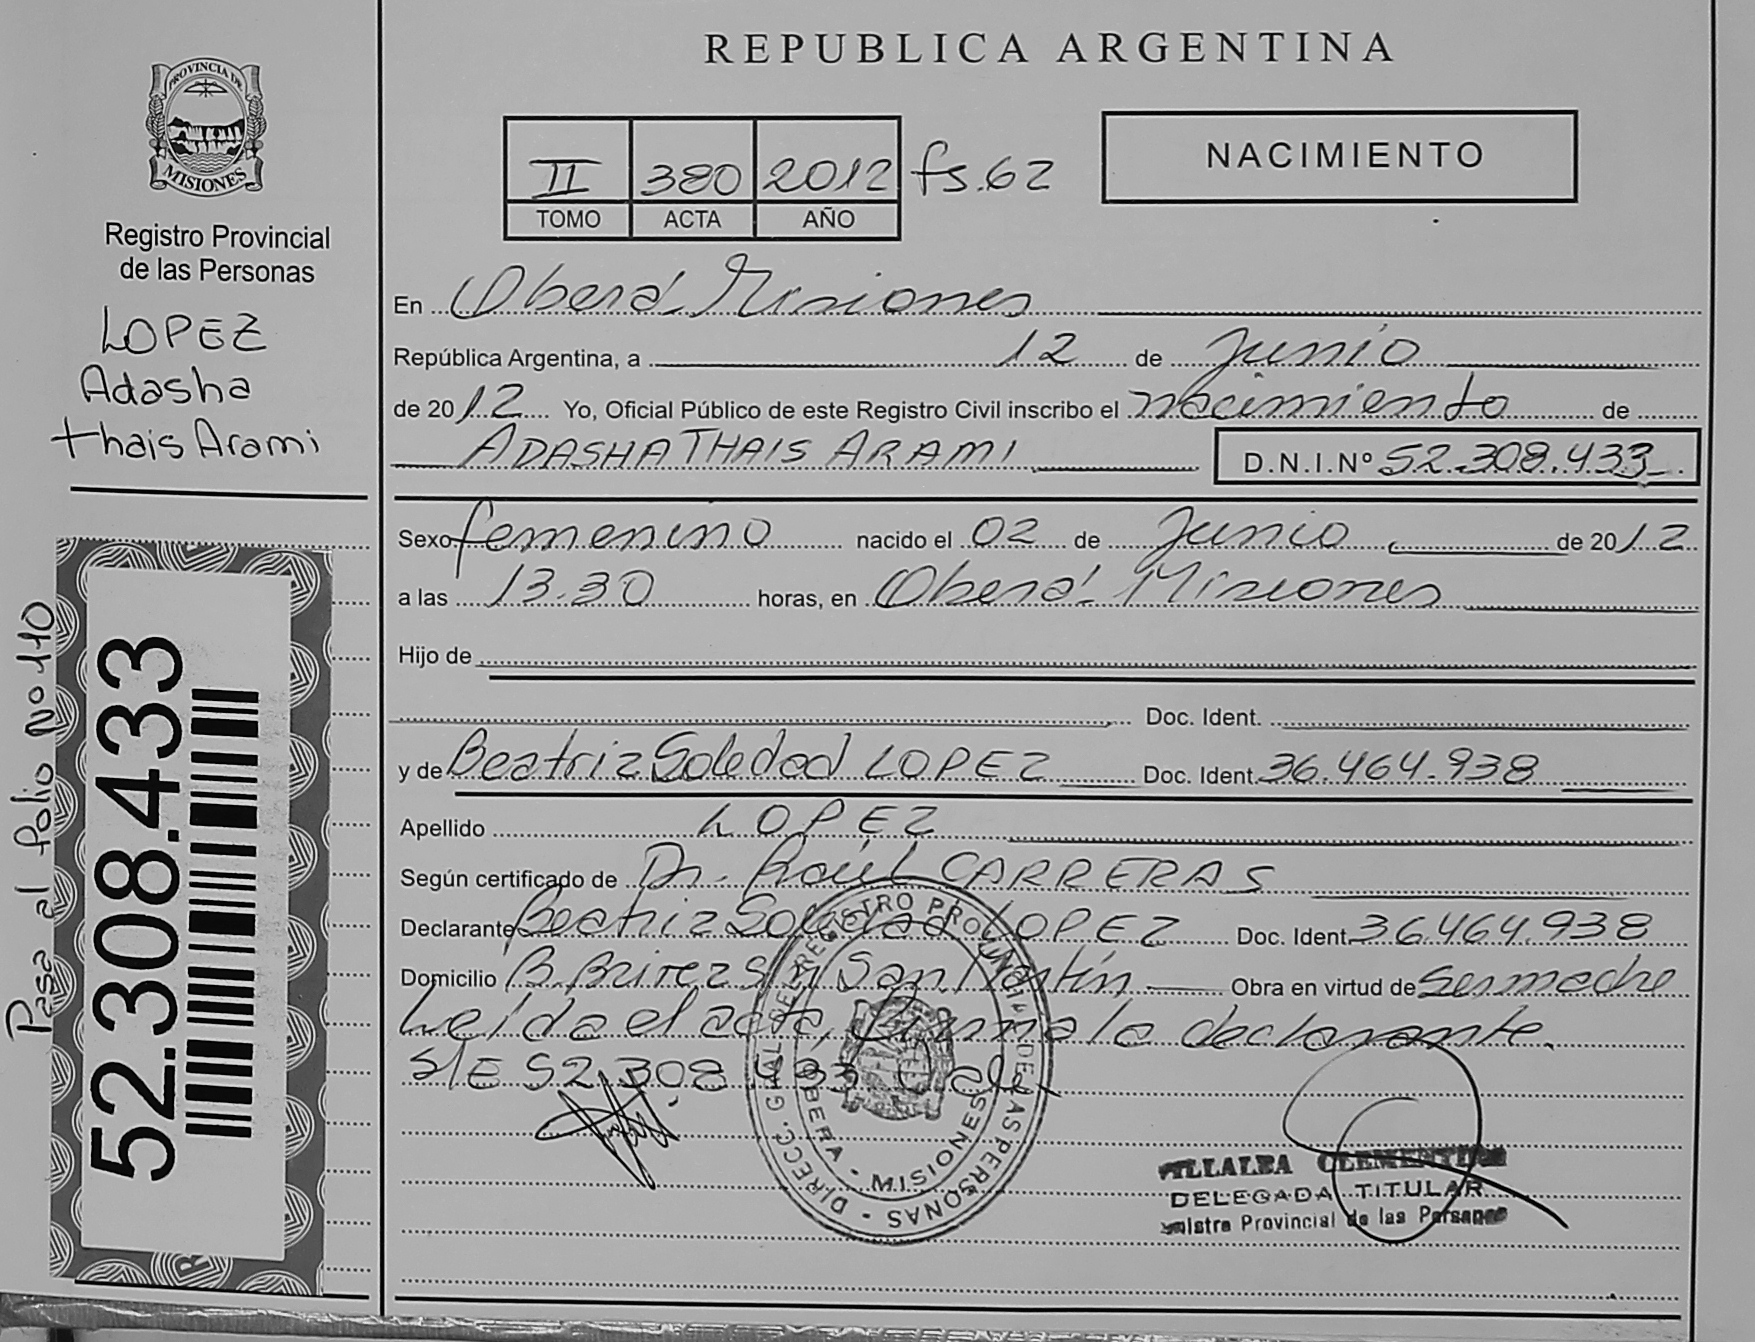 REPUBLICA ARGENTINA
PROVINCIA DE
MISIONES
Registro Provincial
de las Personas
LOPEZ
Adasha
thais Arami
II 380 2012 fs.62
TOMO ACTA AÑO
NACIMIENTO
En Oberá Misiones
República Argentina, a 12 de Junio
de 2012 Yo, Oficial Público de este Registro Civil inscribo el nacimiento de
ADASHA THAIS ARAMI D.N.I.Nº 52.308.433
Sexo femenino nacido el 02 de Junio de 2012
a las 13.30 horas, en Oberá Misiones
Hijo de
Doc. Ident.
y de Beatriz Soledad LOPEZ Doc. Ident. 36.464.938
Apellido LOPEZ
Según certificado de Dr. Raúl CARRERAS
Declarante Beatriz Soledad LOPEZ Doc. Ident. 36.464.938
Domicilio San Martín Obra en virtud de ser madre
Leído el acta, firma la declarante.
S/E 52.308.433
DIRECC. GRAL. DEL REGISTRO PROVINCIAL DE LAS PERSONAS
OBERA - MISIONES
VILLALBA CLEMENTINA
DELEGADA TITULAR
Provincial de las Personas
Pasa al folio Nº 110
52.308.433